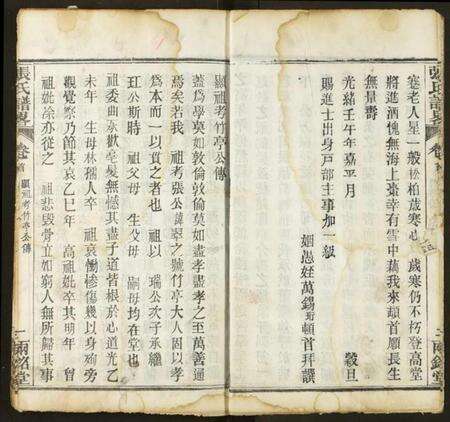 張氏譜畧
卷首
兩銘堂
寒老人星一般松柏歲寒心 歲寒仍不朽登高堂
將進酒愧無海上棗幸有雪中藕我來頓首願長生
無量壽
光緒壬午年嘉平月 穀旦
賜進士出身戶部主事加一級
姻愚姪萬錫珩頓首拜譔
顯祖考竹亭公傳
蓋爲學莫如敦倫敦倫莫如盡孝盡孝之至萬善通
焉矣若我 祖考張公諱 之號竹亭大人固以孝
爲本而一以貫之者也 祖以 瑞公次子承繼
玨公斯時 祖父母 生父母 嗣母均在堂也
祖委曲承歡毫髮無憾其盡子道皆根於心道光乙
未年 生母林孺人卒 祖哀慟慘傷幾以身殉旁
觀覺察乃節其哀乙巳年 高祖妣卒其明年 曾
祖妣涂亦從之 祖悲毀骨立如窮人無所歸其事
張氏譜畧
卷首
顯祖考竹亭公傳
一
兩銘堂